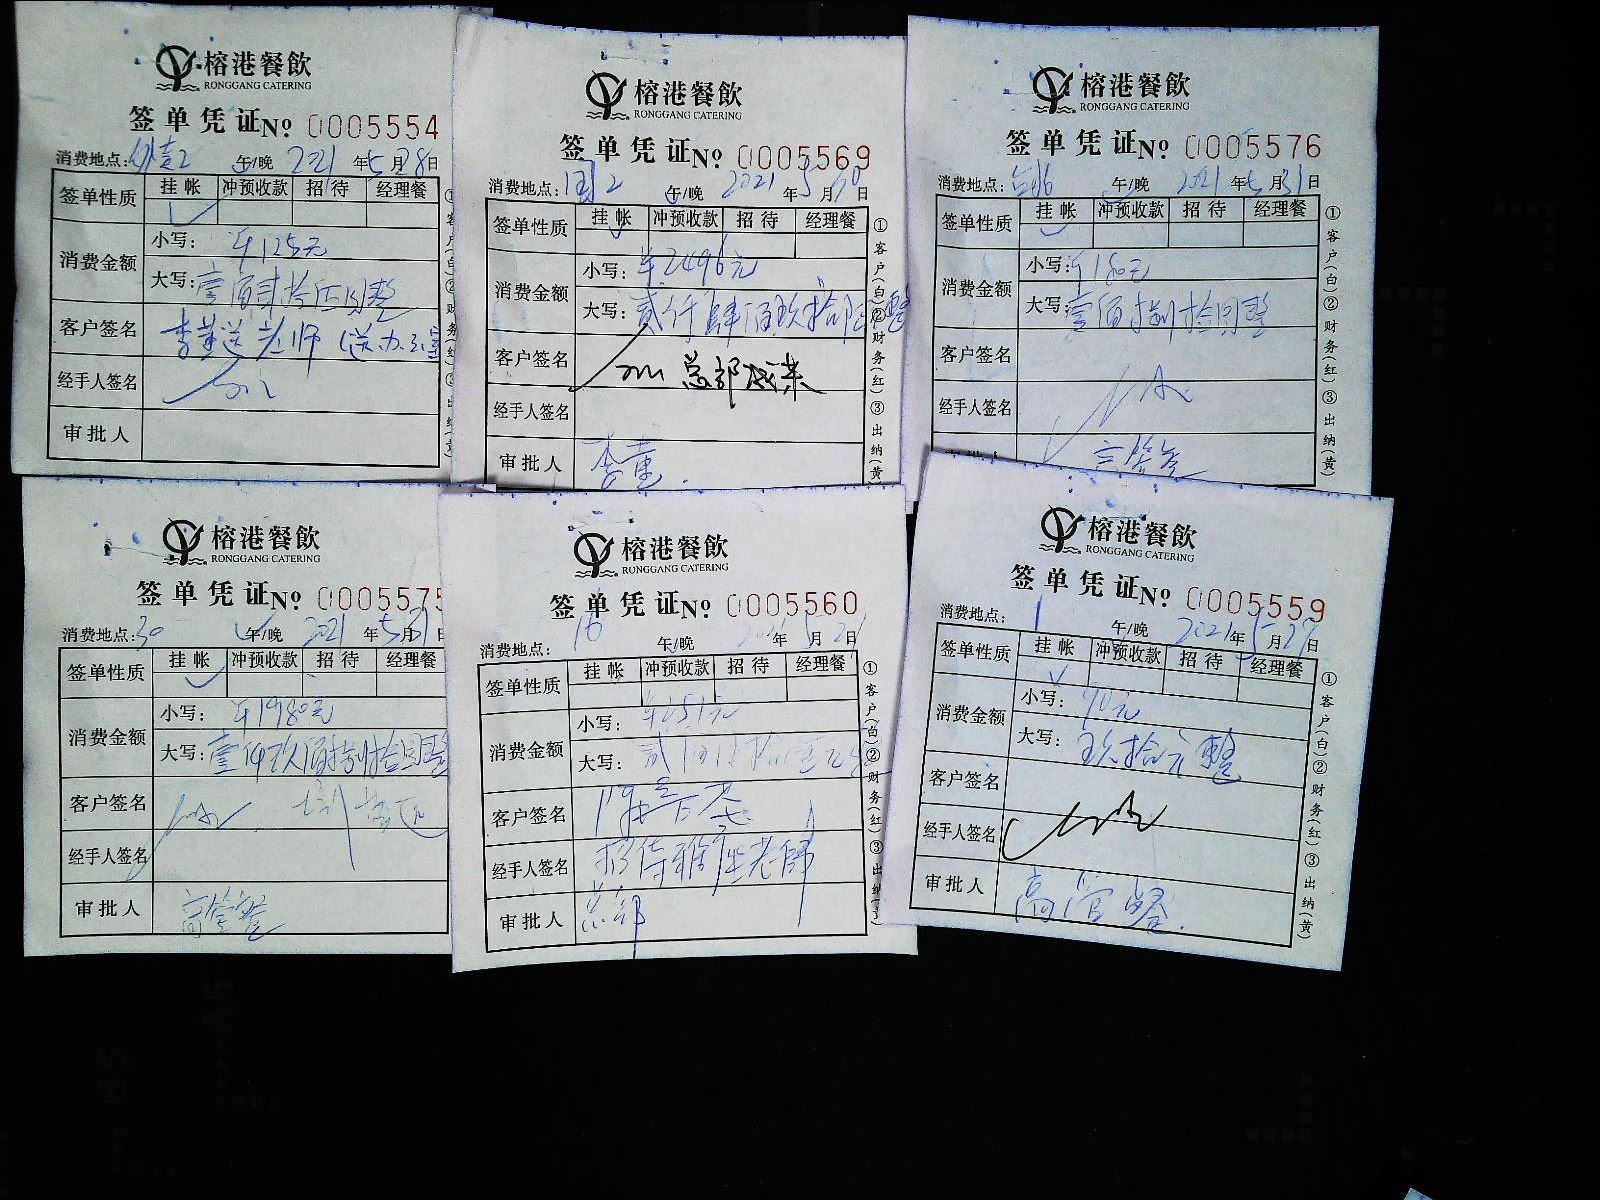 榕港餐飲
RONGGANG CATERING
签单凭证 № 0005554
消费地点: 午/晚 2021年5月28日
签单性质 挂帐 冲预收款 招待 经理餐
消费金额 小写: ¥125元
大写: 壹佰贰拾伍圆整
客户签名 李董送老师(送办公室
经手人签名
审批人
榕港餐飲
RONGGANG CATERING
签单凭证 № 0005569
消费地点: 2 午/晚 2021年5月30日
签单性质 挂帐 冲预收款 招待 经理餐
消费金额 小写: ¥2496元
大写: 贰仟肆佰玖拾陆元整
客户签名 总部
经手人签名
审批人 李董.
①客户(白)②财务(红)③出纳(黄)
榕港餐飲
RONGGANG CATERING
签单凭证 № 0005576
消费地点: 午/晚 2021年5月31日
签单性质 挂帐 冲预收款 招待 经理餐
消费金额 小写: ¥180元
大写: 壹佰捌拾圆整
客户签名
经手人签名
高管餐
①客户(白)②财务(红)③出纳(黄)
榕港餐飲
RONGGANG CATERING
签单凭证 № 0005575
消费地点: 30 午/晚 2021年5月31日
签单性质 挂帐 冲预收款 招待 经理餐
消费金额 小写: ¥1980元
大写: 壹仟玖佰捌拾圆整
客户签名
经手人签名
审批人 高管餐
榕港餐飲
RONGGANG CATERING
签单凭证 № 0005560
消费地点: 16 午/晚 年5月2日
签单性质 挂帐 冲预收款 招待 经理餐
消费金额 小写: ¥251元
大写: 贰佰伍拾壹元整
客户签名
经手人签名 招待雅座老师
审批人 总部
①客户(白)②财务(红)③出纳
榕港餐飲
RONGGANG CATERING
签单凭证 № 0005559
消费地点: 1 午/晚 2021年5月27日
签单性质 挂帐 冲预收款 招待 经理餐
消费金额 小写: 90元
大写: 玖拾元整
客户签名
经手人签名
审批人 高管餐.
①客户(白)②财务(红)③出纳(黄)